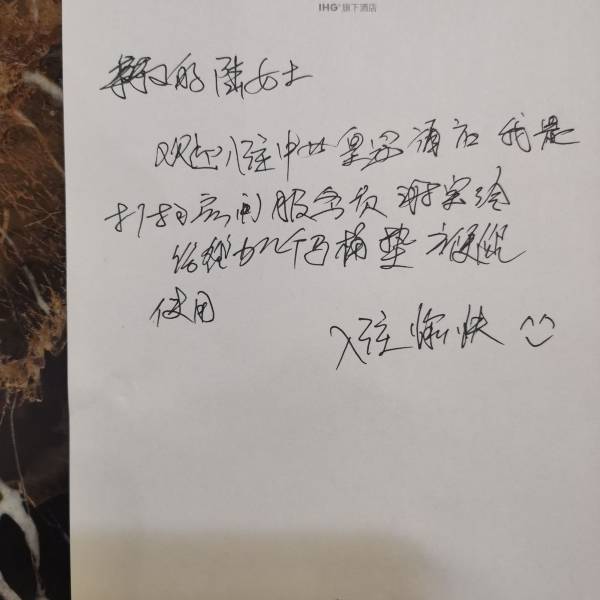 IHG®旗下酒店
亲爱的陈女士
欢迎入住中 皇冠酒店 我是
打扫房间服务员 谢 给
给您 几个马桶垫 方便您
使用
入住愉快 ^^